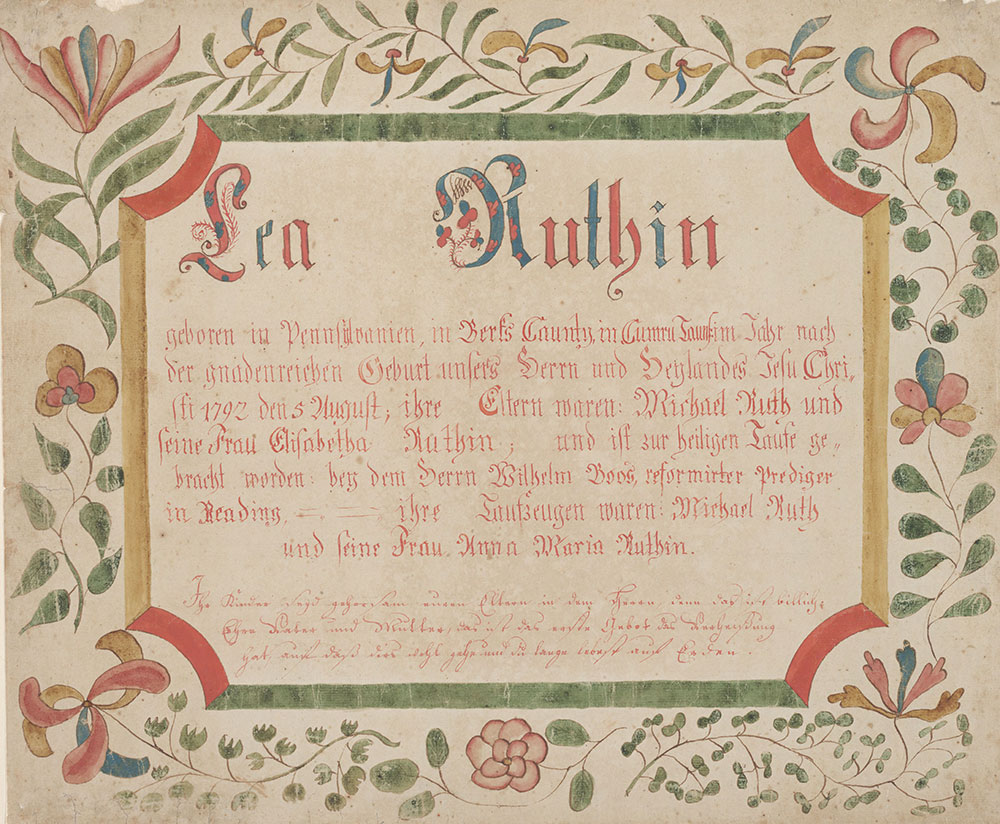 Lea Ruthin
geboren in Pennsilvanien, in Berks Caunty, in Cumru Taunsʼ im Jahr nach
der gnadenreichen Geburt unsers Herrn und Heylandes Jesu Chri-
sti 1792 den 5 August; ihre Eltern waren: Michael Ruth und
seine Frau Elisabetha Ruthin; und ist zur heiligen Taufe ge-
bracht worden: bey dem Herrn Wilhelm Boos, reformirter Prediger
in Reading, ihre Taufzeugen waren: Michael Ruth
und seine Frau Anna Maria Ruthin.
Ihr Kinder seyd gehorsam euren Eltern in dem Herrn, denn das ist billich,
Ehre Vater und Mutter, das ist das erste Gebot das Verheisung
hat, auf daß dirs wohl gehe und du lange lebest auf Erden.